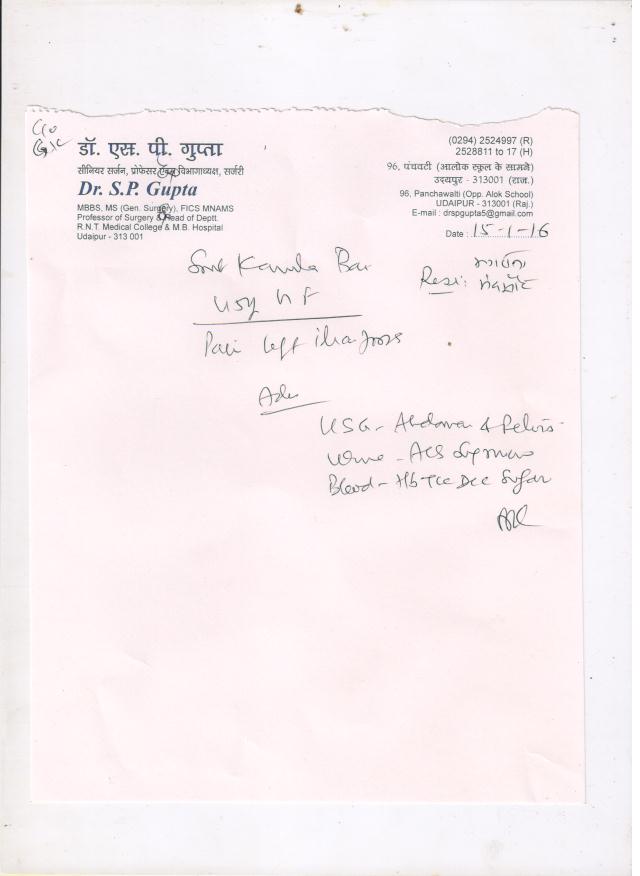 C/o
डॉ. एस. पी. गुप्ता
सीनियर सर्जन, प्रोफेसर एवम् विभागाध्यक्ष, सर्जरी
Dr. S.P. Gupta
MBBS, MS (Gen. Surgery), FICS MNAMS
Professor of Surgery & Head of Deptt.
R.N.T. Medical College & M.B. Hospital
Udaipur - 313 001
(0294) 2524997 (R)
2528811 to 17 (H)
96, पंचवटी (आलोक स्कूल के सामने)
उदयपुर - 313001 (राज.)
96, Panchawalti (Opp. Alok School)
UDAIPUR - 313001 (Raj.)
E-mail : drspgupta5@gmail.com
Date : 15-1-16
Smt Kamla Bai
H F
Resi:
Pain left iliac fossa
Adv
USG - Abdomen & Pelvis
Urine - 
Blood - Hb TLC DLC Sugar